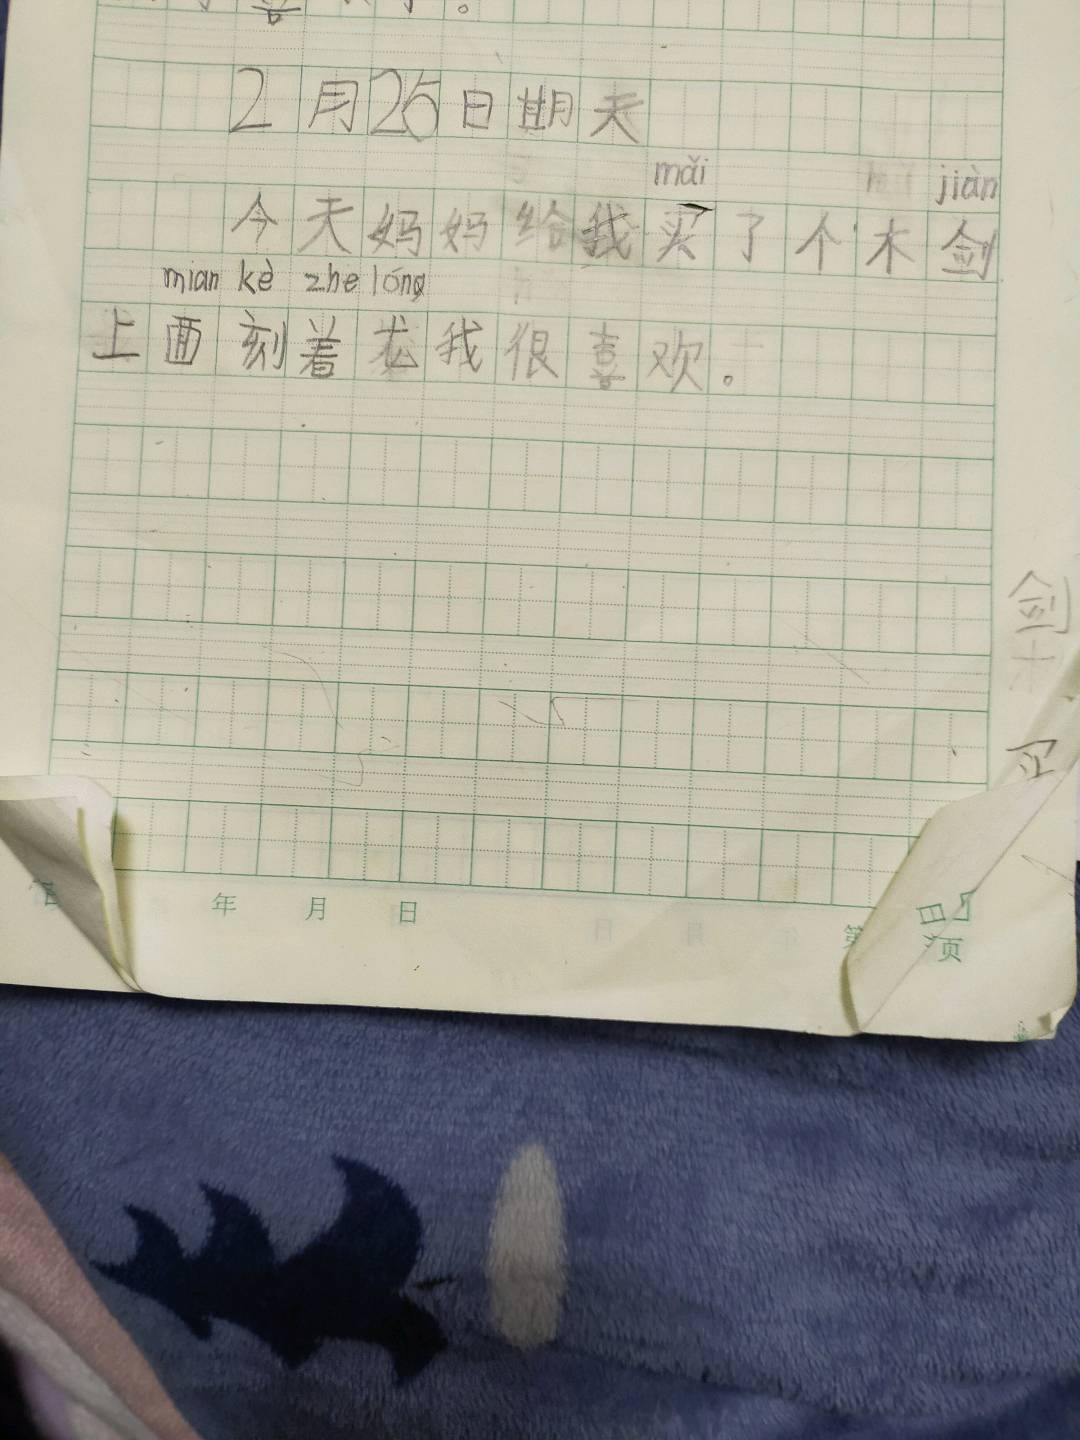 喜。
2月25日期天
mǎi jiàn
今天妈妈给我买了个木剑
mian kè zhe lóng
上面刻着龙我很喜欢。
剑
木
买
年 月 日
第 页